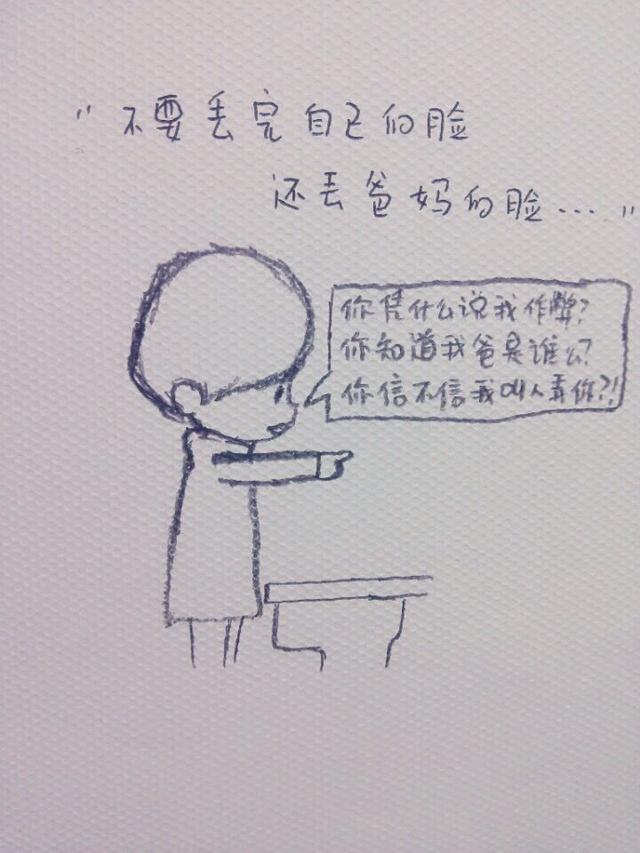 "不要丢完自己的脸
还丢爸妈的脸...."
你凭什么说我作弊?
你知道我爸是谁么?
你信不信我叫人弄你?!